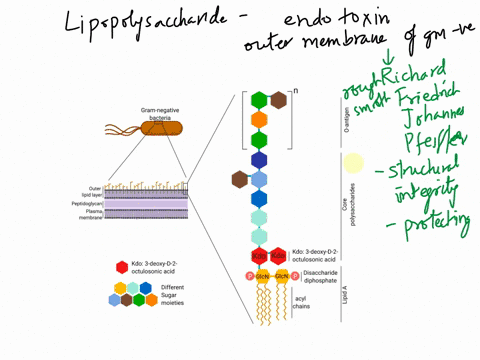 Lipopolysaccharide - endotoxin
outer membrane of gm -ve
rough Richard
smooth Friedrich
Johannes
Pfeiffer
- structural
integrity
- protecting
Gram-negative
bacteria
Outer
lipid layer
Peptidoglycan
Plasma
membrane
Kdo: 3-deoxy-D-2-
octulosonic acid
Different
Sugar
moieties
n
O-antigen
Core
polysaccharides
Kdo Kdo
Kdo: 3-deoxy-D-2-
octulosonic acid
P GlcN GlcN P
Disaccharide
diphosphate
acyl
chains
Lipid A